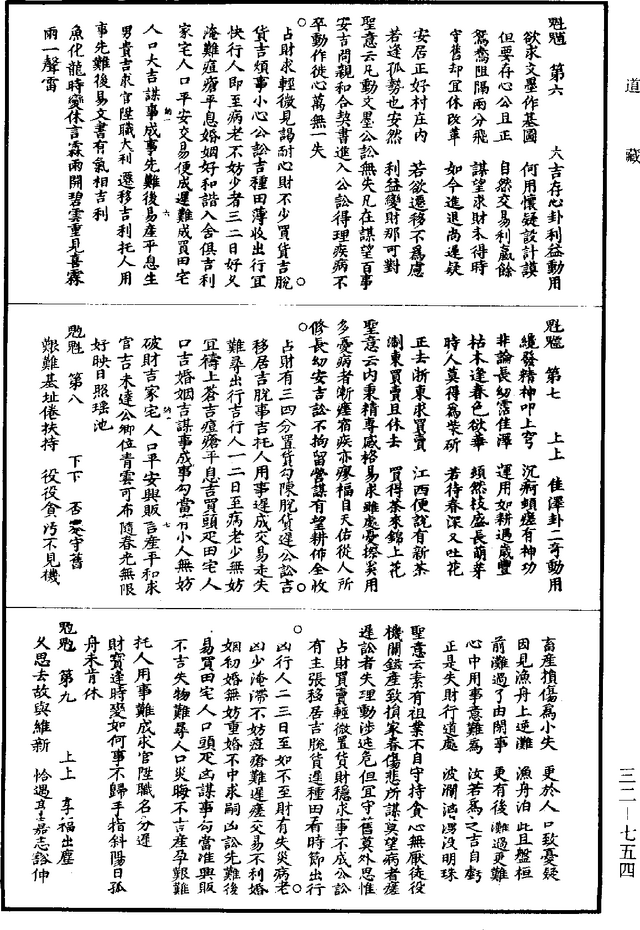 道藏
三二—七五四
魁魓　第六　　大吉存心卦利益動用
欲求文墨作基圖　何用懷疑設計謨
但要存心公且正　自然交易利贏餘
鴛鴦阻隔兩分飛　謀望求財未得時
守舊却宜休改革　如今進退尚遲疑
安居正好村庄內　若欲遷移不爲慮
若逢孤勢也安然　利益變財那可對
聖意云凡動文墨公訟無失凡在謀望百事
安吉問親和合契書進入公訟得理疾病不
卒動作徙心萬無一失
占財求輕微見謁耐心財不少買貨吉脫
貨吉煩事小心公訟吉種田薄收出行宜
快行人即至病老不妨少者三二日好乂
淹難瘟瘡平息婚姻好和諧入舍俱吉利
家宅人口平安交易便成遲難成買田宅
人口大吉謀事成事先難後易產平息生
男貴吉求官陞職大利遷移吉利托人用
事先難後易文書有氣相吉利
魚化龍時變休言霖雨開碧雲重見喜霖
雨一聲雷
第七　　上上　佳澤卦二奇動用
纔發精神叩上穹　沉痾頓瘥有神功
非論長幼霑佳澤　運用如耕遇歲豐
枯木逢春色欲華　頻然枝盛長萌芽
時人莫得爲柴斫　若待春深又吐花
正去浙東求買賣　江西便說有新茶
淛東買賣且休去　買得茶來錦上花
聖意云內秉精專感格易求雖處憂撓矣用
多憂病者漸瘥宿疾亦瘳福自天佑從人所
修長幼安吉訟不拘留營謀有望耕佈全收
占財有三四分置貨勾陳脫貨遲公訟吉
移居吉脫事吉托人用事遲成交易走失
難尋出行吉行人一二日至病老少無妨
宜禱上蒼吉瘟瘡平息吉買頭疋田宅人
口吉婚姻吉謀事成事勾當有小人無妨
破財吉家宅人口平安興販言產平和求
官吉未達公卿位青雲可布隨春光無限
好映日照瑶池
第八　　下下　否衰守舊
艱難基址倦扶持　役役貪汚不見機
畜產損傷爲小失　更於人口致憂疑
因見漁舟上逆灘　漁舟泊此且盤桓
前灘過了由閑事　更有後灘過更難
心中用事意難爲　汝若爲之吉自虧
正是失財行道處　波瀾浩渺沒明珠
聖意云素有祖業不自守持貪心無厭徒役
機關錙產致損家眷傷悲所謀莫望病者瘥
遲訟者失理動涉逃危但宜守舊莫外思惟
占財買賣輕微置貨財穩求事不成公訟
有主張移居吉脫貨遲種田看時節出行
凶行人二三日至如不至財有失災病老
凶少淹滯不妨痘瘡難遲瘥交易不利婚
姻初婚無妨重婚不中求嗣凶訟先難後
易買田宅人口頭疋凶謀事勾當准興販
不吉失物難尋人口災晦不吉產孕艱難
托人用事難成求官陞職名分遲
財寶逢時變如何事不歸手指斜陽日孤
舟未肯休
第九　　上上　享福出塵
久思去故與維新　恰遇亨嘉志鎔伸